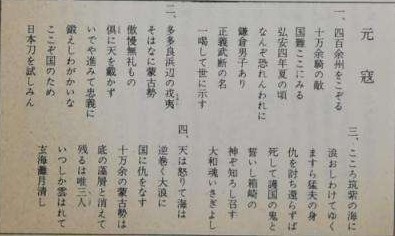 元寇
一、四百余州をこぞる
十万余騎の敵
国難ここにみる
弘安四年夏の頃
なんぞ恐れんわれに
鎌倉男子あり
正義武断の名
一喝して世に示す
二、多々良浜辺の戎夷
そはなに蒙古勢
傲慢無礼もの
倶に天を戴かず
いでや進みて忠義に
鍛えしわがかいな
ここぞ国のため
日本刀を試しみん
三、こころ筑紫の海に
浪おしわけてゆく
ますら猛夫の身
仇を討ち還らずば
死して護国の鬼と
誓いし箱崎の
神ぞ知ろし召す
大和魂いさぎよし
四、天は怒りて海は
逆巻く大浪に
国に仇をなす
十万余の蒙古勢は
底の藻屑と消えて
残るは唯三人
いつしか雲はれて
玄海灘月清し